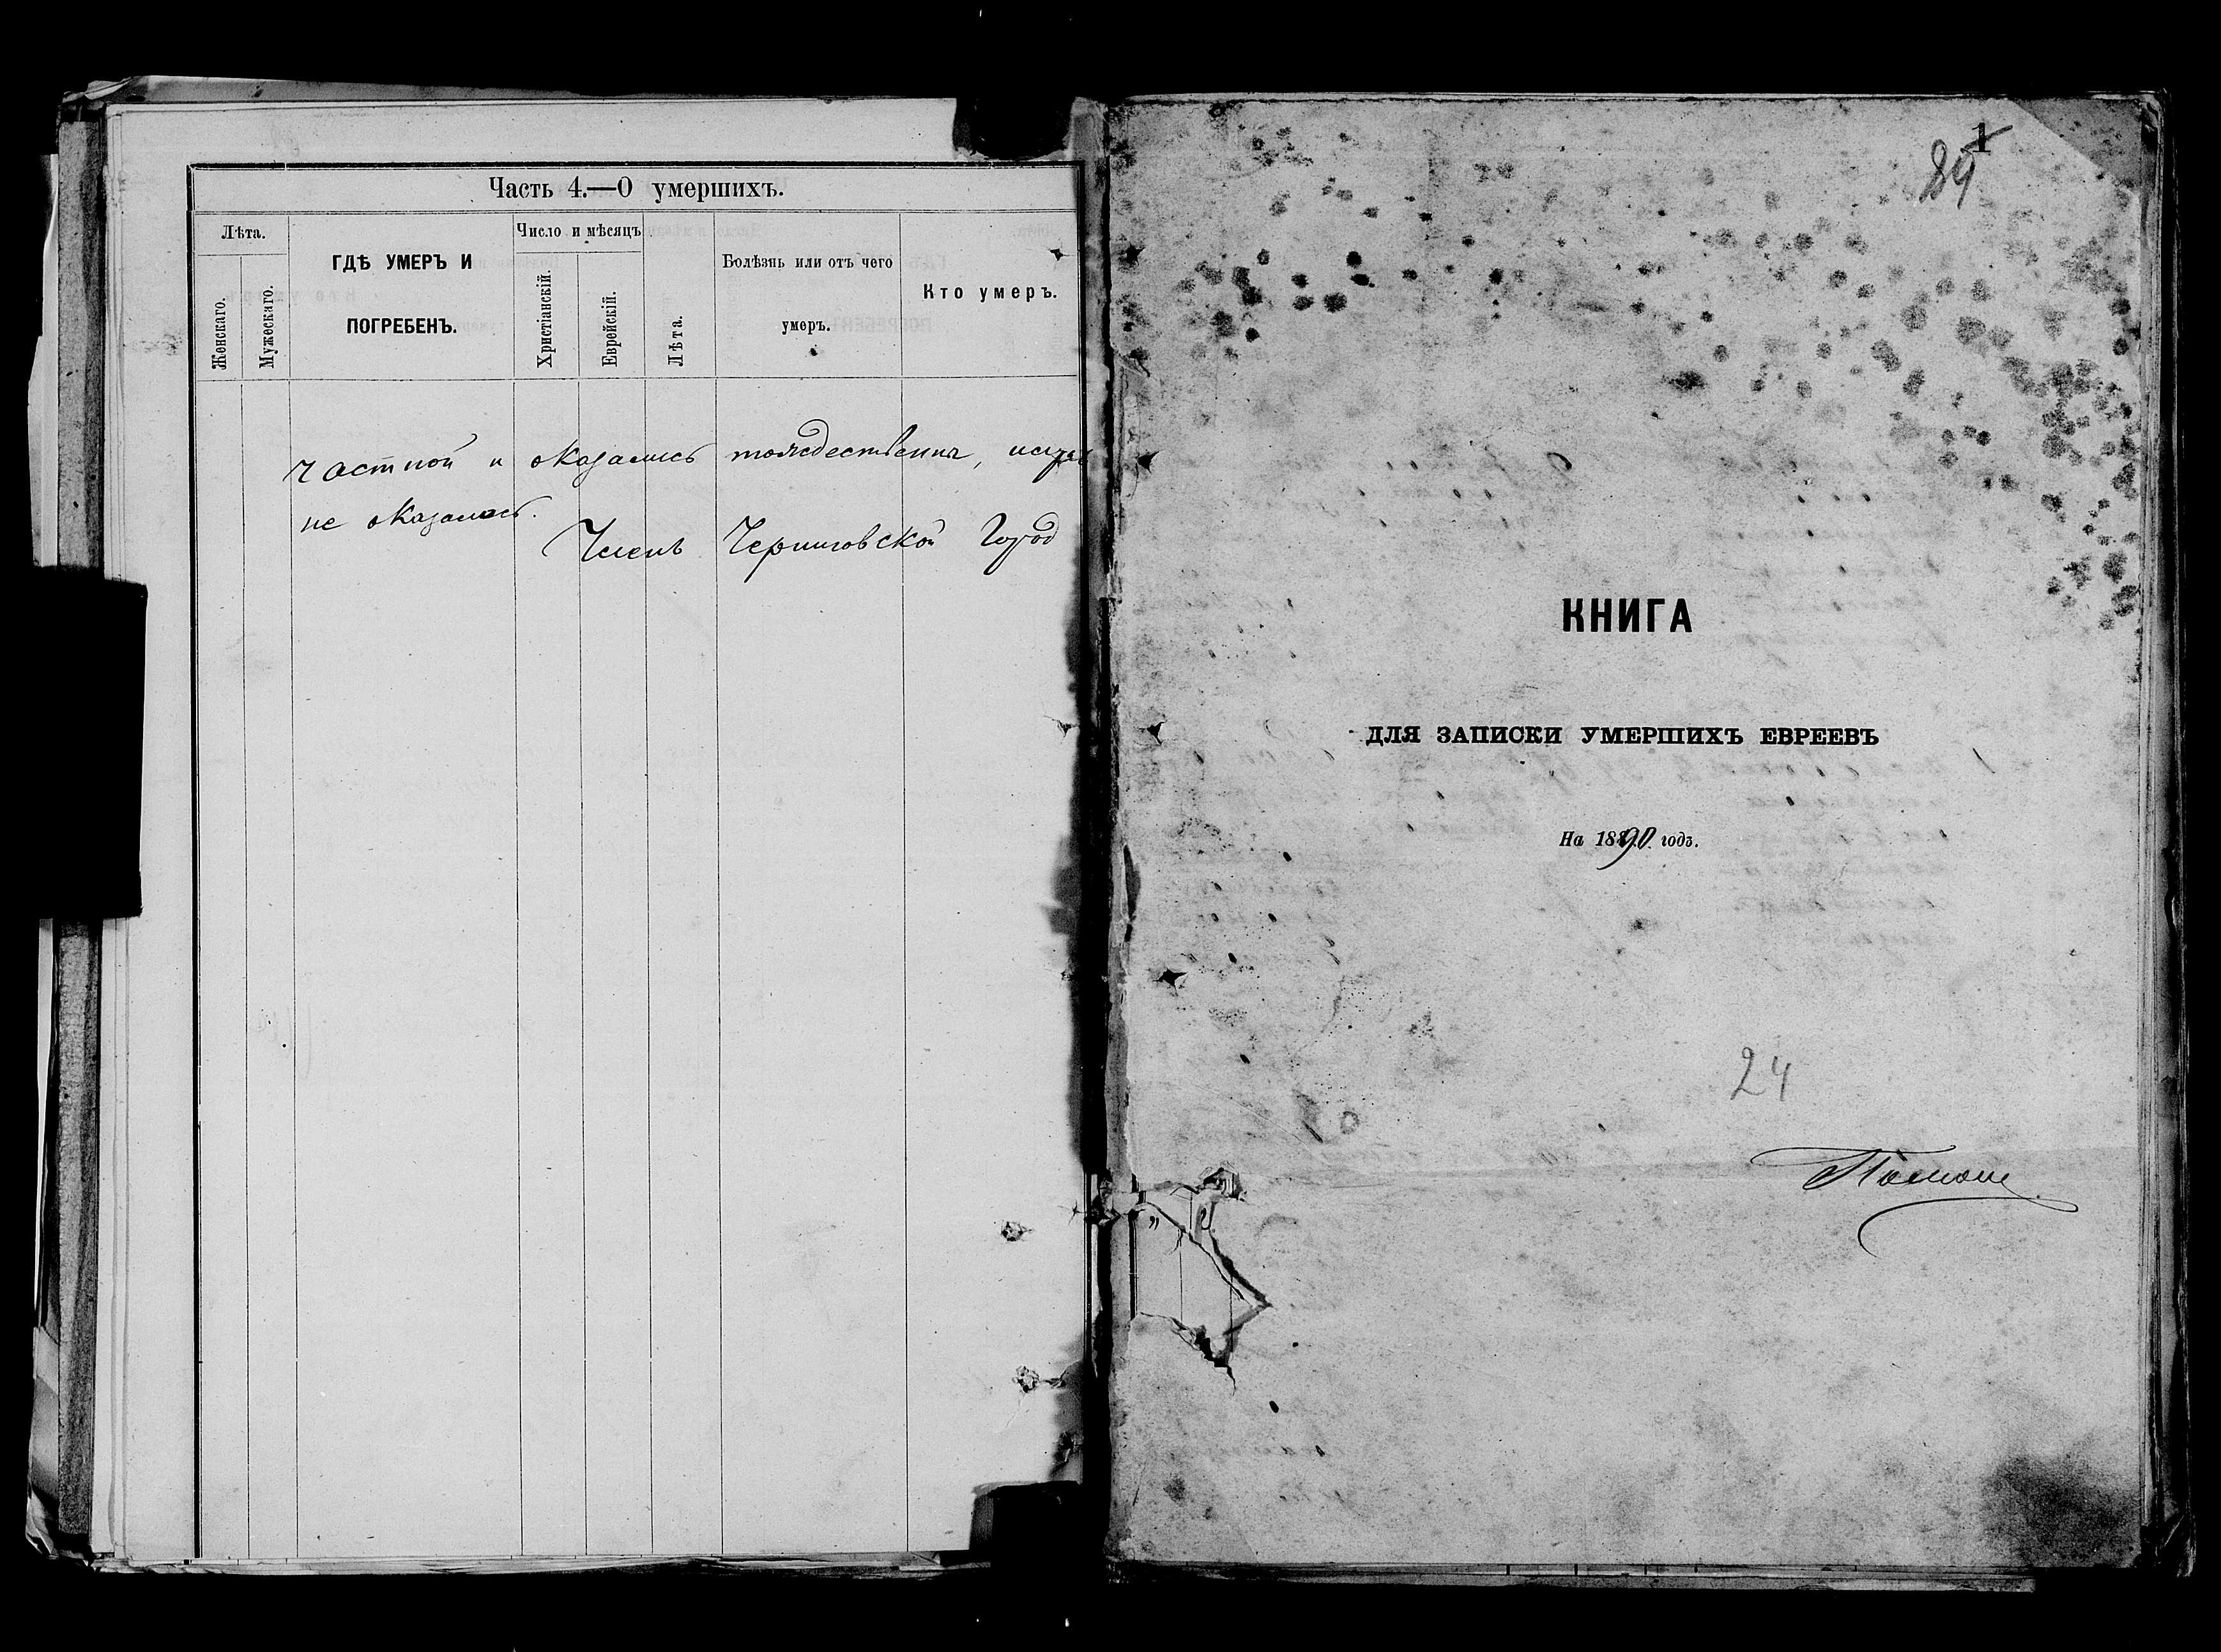 Часть 4.—О умершихъ.
Лѣта.
Женскаго.
Мужескаго.
ГДѢ УМЕРЪ И
ПОГРЕБЕНЪ.
Число и мѣсяцъ
Христіанскій.
Еврейскій.
Лѣта.
Болѣзнь или отъ чего
умеръ.
Кто умеръ.
частной и оказались тождественны,
не оказалось.
Членъ Черниговской Город
1
89
КНИГА
ДЛЯ ЗАПИСКИ УМЕРШИХЪ ЕВРЕЕВЪ
На 1890 годъ.
24